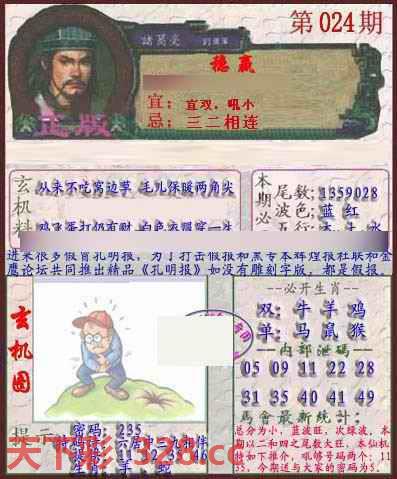 第024期
諸葛亮
穩贏
宜：宜双，吼小
忌：三二相连
正版
玄机料
从来不吃窝边草 毛儿保暖两角尖
本期必
尾数：1359028
波色：蓝 红
进来很多假冒孔明报，为了打击假报和黑专本辉煌报社联和金
鹰论坛共同推出精品《孔明报》如没有雕刻字版，都是假报。
玄机图
必开生肖
双：牛 羊 鸡
单：马 鼠 猴
内部泄码
05 09 11 22 28
31 35 40 41 49
馬會最新統計：
总分为小，蓝波旺，次绿波，本
期以二和四之尾数大旺，本仙机
特如下推介，吼够号码两个：11
35，今期送与大家的密码为5。
密码：235
天下彩 328.cc